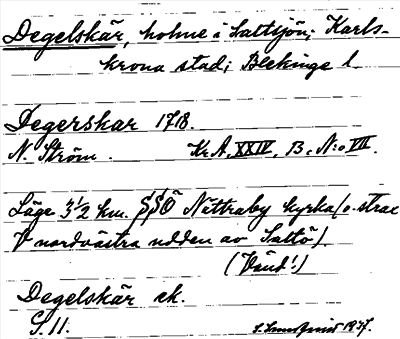 Degelskär, holme i Saltsjön; Karls-
krona stad; Blekinge l.
Degerskar 1718.
N. Ström. Kr. A. XXIV, B. N:o VII.
Läge 3½ km. SSÖ Nättraby kyrka (o. strax
V nordvästra udden av Saltö).
(Vänd!)
Degelskär ek.
S. 11. 1937.